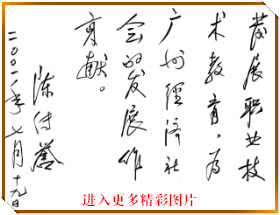 發展职业技
术教育，为
广州經济社
会的发展作
貢献。
陈传誉
二〇〇一年七月十九日
进入更多精彩图片